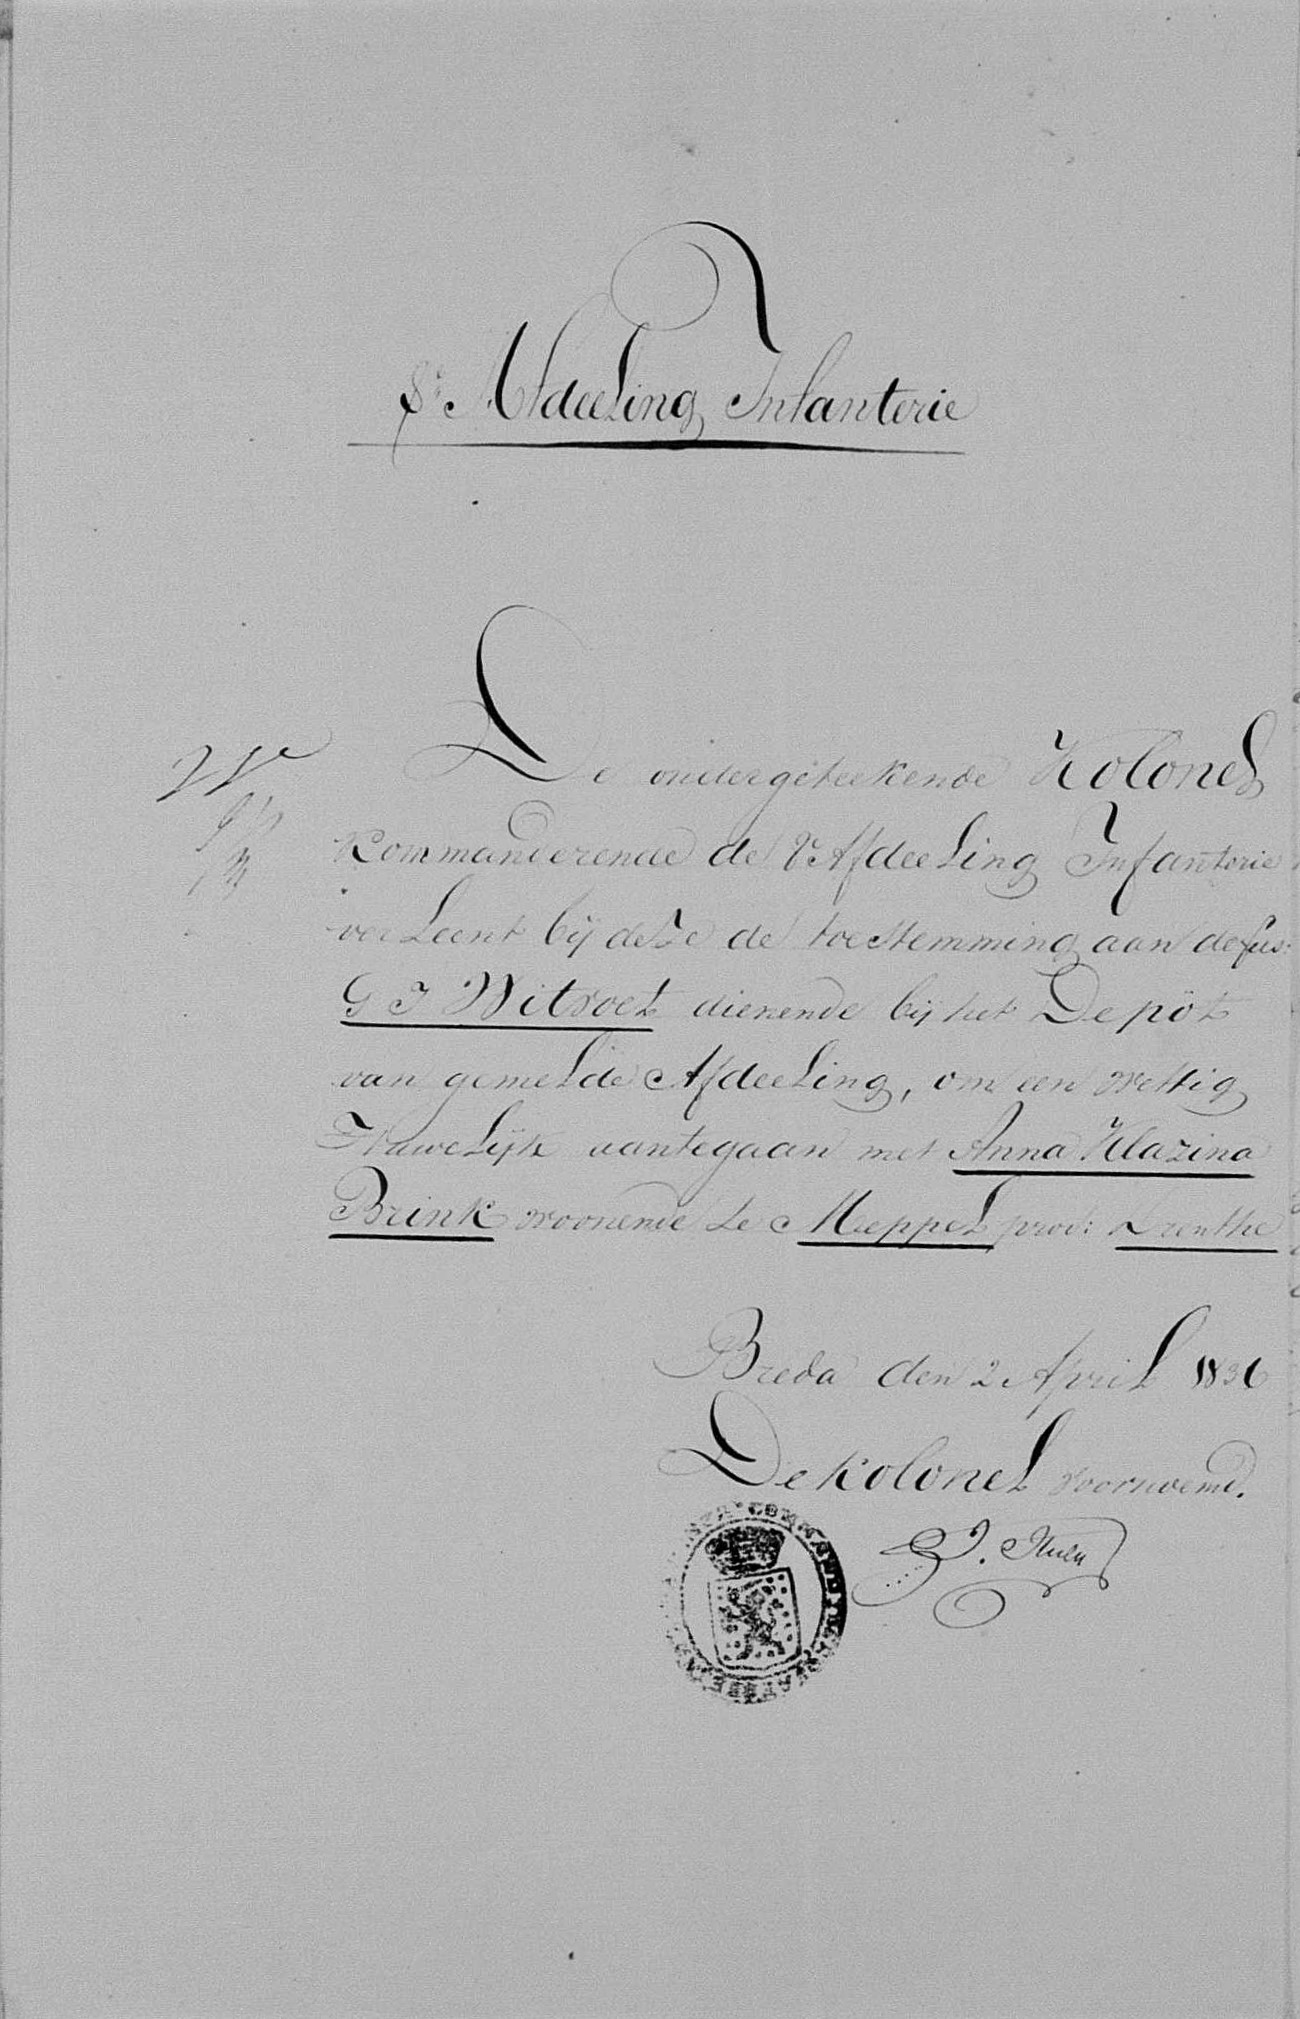 8e Afdeeling Infanterie
De ondergeteekende Kolonel
Kommanderende de 8e Afdeeling Infanterie
verleent bij deze de toestemming aan de fus:
G J Witvoet dienende bij het Depöt
van gemelde Afdeeling, om een wettig
Huwelijk aantegaan met Anna Klazina
Brink woonende te Meppel prov: Drenthe
Breda den 2 April 1836
De Kolonel voornoemd.